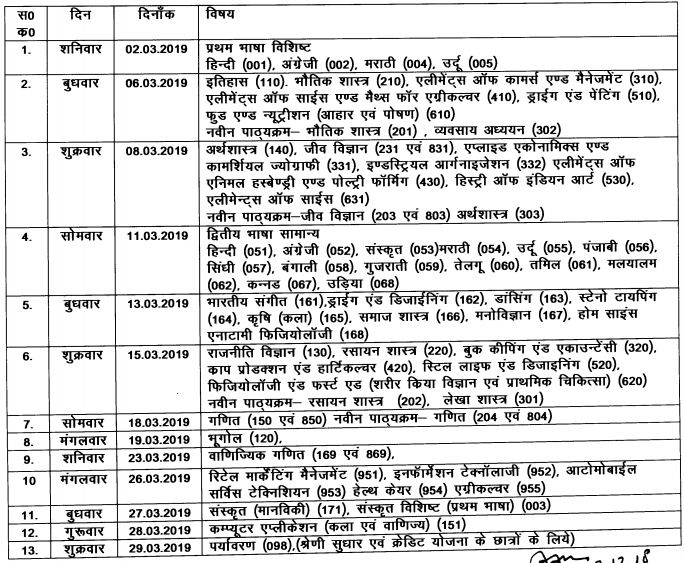 स0 क0 दिन दिनाँक विषय
1. शनिवार 02.03.2019 प्रथम भाषा विशिष्ट
हिन्दी (001), अंग्रेजी (002), मराठी (004), उर्दू (005)
2. बुधवार 06.03.2019 इतिहास (110). भौतिक शास्त्र (210), एलीमेंट्स ऑफ कामर्स एण्ड मैनेजमेंट (310),
एलीमेंट्स ऑफ साईस एण्ड मैथ्स फॉर एग्रीकल्चर (410), ड्राईग एंड पेंटिंग (510),
फुड एण्ड न्यूट्रीशन (आहार एवं पोषण) (610)
नवीन पाठ्यक्रम– भौतिक शास्त्र (201) , व्यवसाय अध्ययन (302)
3. शुक्रवार 08.03.2019 अर्थशास्त्र (140), जीव विज्ञान (231 एवं 831), एप्लाइड एकोनामिक्स एण्ड
कामर्शियल ज्योग्राफी (331), इण्डस्ट्रियल आर्गनाइजेशन (332) एलीमेंटस ऑफ
एनिमल हस्बेण्ड्री एण्ड पोल्ट्री फॉर्मिंग (430), हिस्ट्री ऑफ इंडियन आर्ट (530),
एलीमेन्ट्स ऑफ साईस (631)
नवीन पाठ्यक्रम–जीव विज्ञान (203 एवं 803) अर्थशास्त्र (303)
4. सोमवार 11.03.2019 द्वितीय भाषा सामान्य
हिन्दी (051), अंग्रेजी (052), संस्कृत (053)मराठी (054), उर्दू (055), पंजाबी (056),
सिंधी (057), बंगाली (058), गुजराती (059), तेलगू (060), तमिल (061), मलयालम
(062), कन्नड (067), उड़िया (068)
5. बुधवार 13.03.2019 भारतीय संगीत (161),ड्राईग एंड डिजाईनिंग (162), डांसिंग (163), स्टेनो टायपिंग
(164), कृषि (कला) (165), समाज शास्त्र (166), मनोविज्ञान (167), होम साइंस
एनाटामी फिजियोलॉजी (168)
6. शुक्रवार 15.03.2019 राजनीति विज्ञान (130), रसायन शास्त्र (220), बुक कीपिंग एंड एकाउन्टेंसी (320),
काप प्रोडक्शन एंड हार्टिकल्चर (420), स्टिल लाइफ एंड डिजाइनिंग (520),
फिजियोलॉजी एंड फर्स्ट एड (शरीर किया विज्ञान एवं प्राथमिक चिकित्सा) (620)
नवीन पाठ्यक्रम– रसायन शास्त्र (202), लेखा शास्त्र (301)
7. सोमवार 18.03.2019 गणित (150 एवं 850) नवीन पाठ्यक्रम– गणित (204 एवं 804)
8. मंगलवार 19.03.2019 भूगोल (120),
9. शनिवार 23.03.2019 वाणिज्यिक गणित (169 एवं 869),
10 मंगलवार 26.03.2019 रिटेल मार्केटिंग मैनेजमेंट (951), इनफॉर्मेशन टेक्नॉलाजी (952), आटोमोबाईल
सर्विस टेक्निशियन (953) हेल्थ केयर (954) एग्रीकल्चर (955)
11. बुधवार 27.03.2019 संस्कृत (मानविकी) (171), संस्कृत विशिष्ट (प्रथम भाषा) (003)
12. गुरूवार 28.03.2019 कम्प्यूटर एप्लीकेशन (कला एवं वाणिज्य) (151)
13. शुक्रवार 29.03.2019 पर्यावरण (098),(श्रेणी सुधार एवं क्रेडिट योजना के छात्रों के लिये)